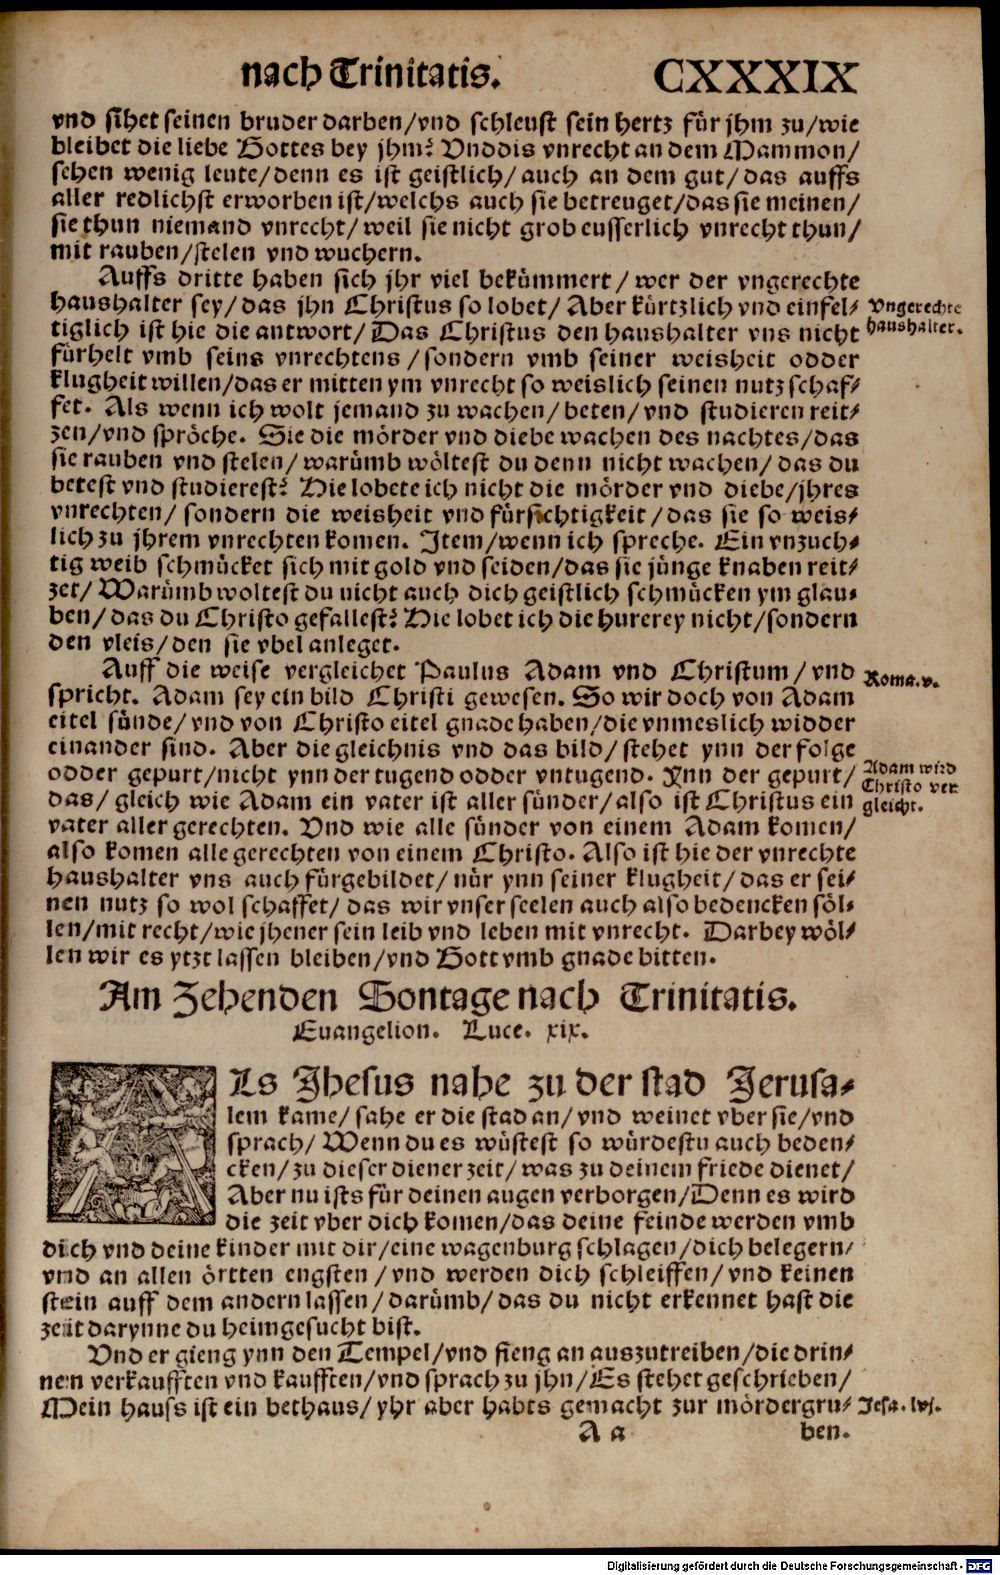 nach Trinitatis. CXXXIX
vnd sihet seinen bruder darben/vnd schleust sein hertz für jhm zu/wie
bleibet die liebe Gottes bey jhm? Vnd dis vnrecht an dem Mammon/
sehen wenig leute/denn es ist geistlich/auch an dem gut/das auffs
aller redlichst erworben ist/welchs auch sie betreuget/das sie meinen/
sie thun niemand vnrecht/weil sie nicht grob eusserlich vnrecht thun/
mit rauben/stelen vnd wuchern.
Auffs dritte haben sich jhr viel bekümmert/wer der vngerechte
haushalter sey/das jhn Christus so lobet/Aber kürtzlich vnd einfel-
tiglich ist hie die antwort/Das Christus den haushalter vns nicht
fürhelt vmb seins vnrechtens/sondern vmb seiner weisheit odder
klugheit willen/das er mitten ym vnrecht so weislich seinen nutz schaf-
fet. Als wenn ich wolt jemand zu wachen/beten/vnd studieren reit-
zen/vnd spröche. Sie die mörder vnd diebe wachen des nachtes/das
sie rauben vnd stelen/warümb wöltest du denn nicht wachen/das du
betest vnd studierest? Hie lobete ich nicht die mörder vnd diebe/jhres
vnrechten/sondern die weisheit vnd fürsichtigkeit/das sie so weis-
lich zu jhrem vnrechten komen. Item/wenn ich spreche. Ein vnzuch-
tig weib schmücket sich mit gold vnd seiden/das sie jünge knaben reit-
zet/Warümb woltest du nicht auch dich geistlich schmücken ym glau-
ben/das du Christo gefallest? Hie lobet ich die hurerey nicht/sondern
den vleis/den sie vbel anleget.
Vngerechte
haushalter.
Auff die weise vergleichet Paulus Adam vnd Christum/vnd
spricht. Adam sey ein bild Christi gewesen. So wir doch von Adam
eitel sünde/vnd von Christo eitel gnade haben/die vnmeslich widder
einander sind. Aber die gleichnis vnd das bild/stehet ynn der folge
odder gepurt/nicht ynn der tugend odder vntugend. Ynn der gepurt/
das/gleich wie Adam ein vater ist aller sünder/also ist Christus ein
vater aller gerechten. Vnd wie alle sünder von einem Adam komen/
also komen alle gerechten von einem Christo. Also ist hie der vnrechte
haushalter vns auch fürgebildet/nür ynn seiner klugheit/das er sei-
nen nutz so wol schaffet/das wir vnser seelen auch also bedencken söl-
len/mit recht/wie jhener sein leib vnd leben mit vnrecht. Darbey wöl-
len wir es ytzt lassen bleiben/vnd Gott vmb gnade bitten.
Roma. v.
Adam wird
Christo ver
gleicht.
Am Zehenden Sontage nach Trinitatis.
Euangelion. Luce. xix.
Ls Jhesus nahe zu der stad Jerusa-
lem kame/sahe er die stad an/vnd weinet vber sie/vnd
sprach/Wenn du es wüstest so würdestu auch beden-
cken/zu dieser diener zeit/was zu deinem friede dienet/
Aber nu ists für deinen augen verborgen/Denn es wird
die zeit vber dich komen/das deine feinde werden vmb
dich vnd deine kinder mit dir/eine wagenburg schlagen/dich belegern/
vnd an allen örtten engsten/vnd werden dich schleiffen/vnd keinen
stein auff dem andern lassen/darümb/das du nicht erkennet hast die
zeit darynne du heimgesucht bist.
Vnd er gieng ynn den Tempel/vnd fieng an auszutreiben/die drin-
nen verkaufften vnd kaufften/vnd sprach zu jhn/Es stehet geschrieben/
Mein hauss ist ein bethaus/yhr aber habts gemacht zur mördergru-
Jesa. lvj.
A a ben.
Digitalisierung gefördert durch die Deutsche Forschungsgemeinschaft - DFG